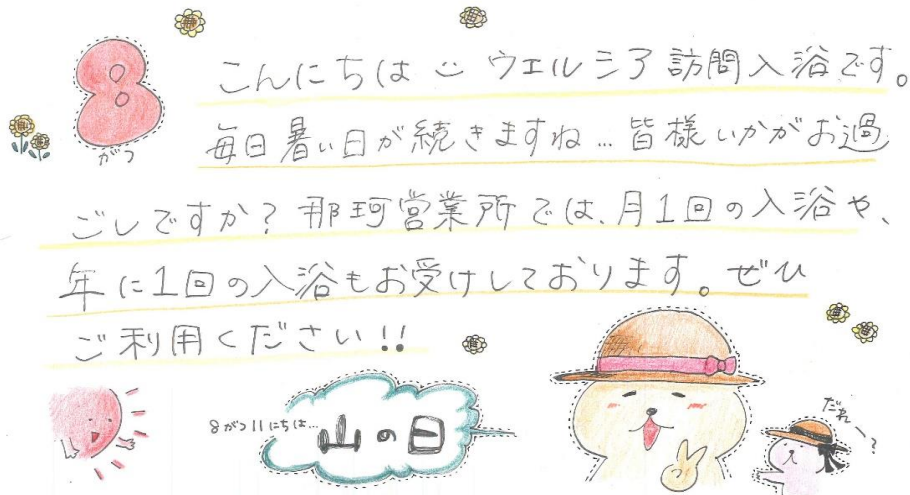 8
がつ
こんにちは ウエルシア訪問入浴です。
毎日暑い日が続きますね…皆様いかがお過
ごしですか？那珂営業所では、月1回の入浴や、
年に1回の入浴もお受けしております。ぜひ
ご利用ください!!
8がつ11にちは…
山の日
だれー?